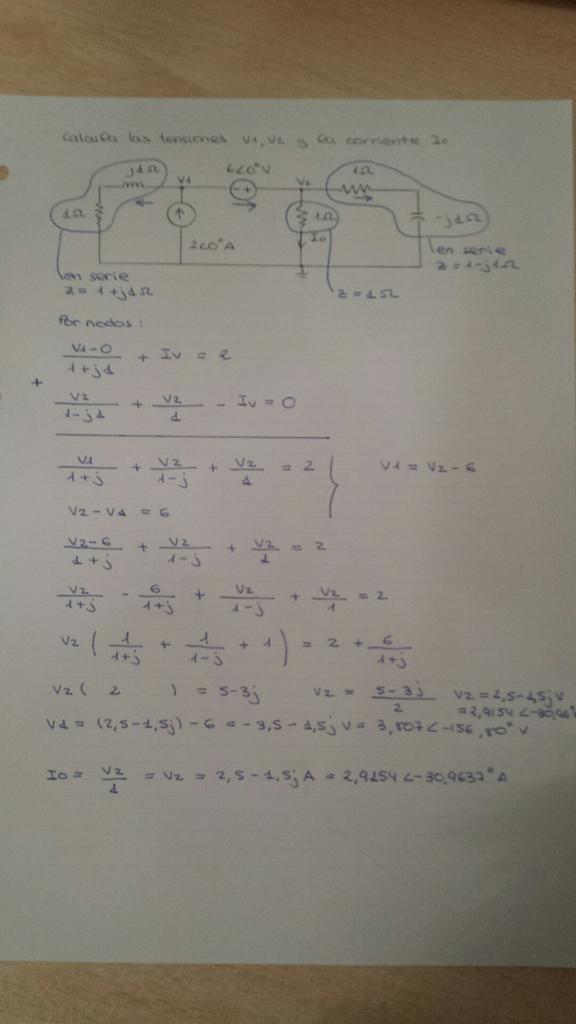 Calcula las tensiones V1, V2 y la corriente Io
j1Ω
V1
6∠0°V
V2
1Ω
1Ω
- +
1Ω
-j1Ω
2∠0°A
Io
en serie
Z = 1 + j1Ω
Z = 1Ω
en serie
Z = 1-j1Ω
Por nodos:
(V1-0)/(1+j1) + Iv = 2
+
V2/(1-j1) + V2/1 - Iv = 0
V1/(1+j) + V2/(1-j) + V2/1 = 2 } V1 = V2 - 6
V2 - V1 = 6
(V2-6)/(1+j) + V2/(1-j) + V2/1 = 2
V2/(1+j) - 6/(1+j) + V2/(1-j) + V2/1 = 2
V2 ( 1/(1+j) + 1/(1-j) + 1 ) = 2 + 6/(1+j)
V2 ( 2 ) = 5-3j V2 = (5-3j)/2 V2 = 2,5-1,5j V
= 2,9154∠-30,96°
V1 = (2,5-1,5j) - 6 = -3,5 - 1,5j V = 3,807∠-156,80° V
Io = V2/1 = V2 = 2,5 - 1,5j A = 2,9154∠-30,9637° A